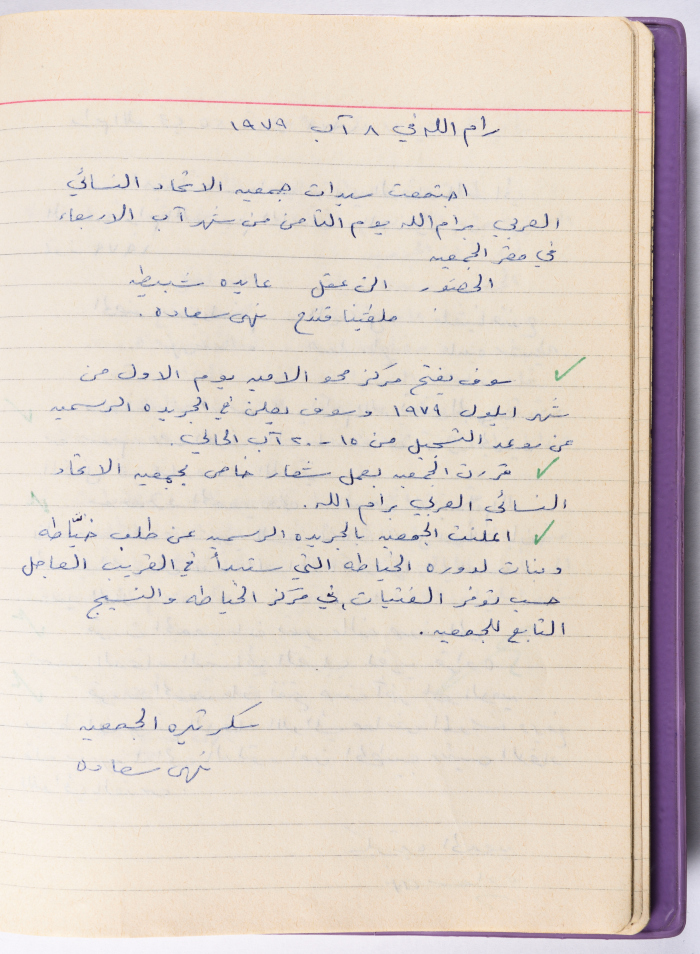 رام الله في ٨ آب ١٩٧٩
اجتمعت سيدات جمعيه الاتحاد النسائي
العربي برام الله يوم الثامن من شهر آب الاربعاء
في مقر الجمعيه
الحضور الن عقل عايده شبيطه
ملفينا قدح نهى سعاده .
سوف يفتح مركز محو الاميه يوم الاول من
شهر ايلول ١٩٧٩ وسوف يعلن في الجريده الرسميه
عن موعد التسجيل من ١٥ - ٢٠ آب الحالي .
قررت الجمعيه بعمل شعار خاص بجمعيه الاتحاد
النسائي العربي برام الله .
اعلنت الجمعيه بالجريده الرسميه عن طلب خيّاطه
وبنات لدوره الخياطه التي ستبدأ في القريب العاجل
حسب توفر الفتيات في مركز الخياطه والنسيج
التابع للجمعيه .
سكرتيره الجمعيه
نهى سعاده